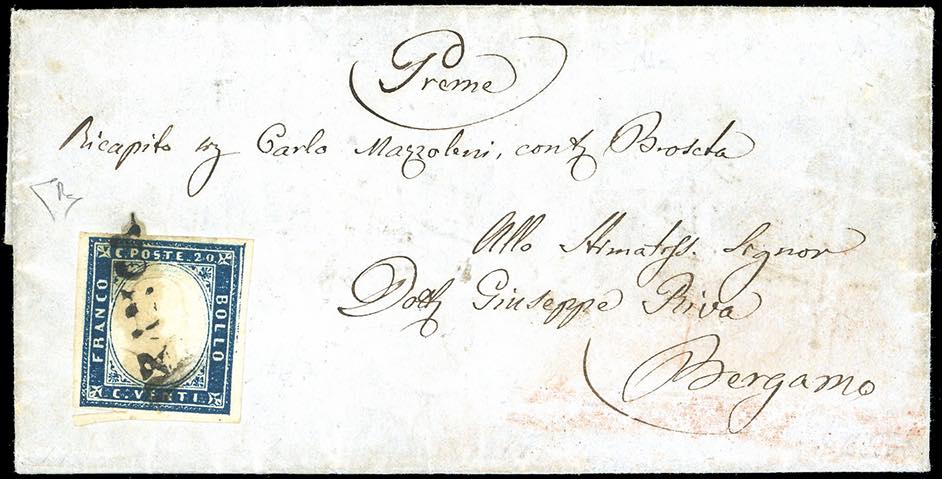 Preme
Ricapito Carlo Mazzoleni, Broseta
Allo Stimatiss. Signor
Dott Giuseppe Riva
Bergamo
C. POSTE. 20
FRANCO
BOLLO
C. VENTI.